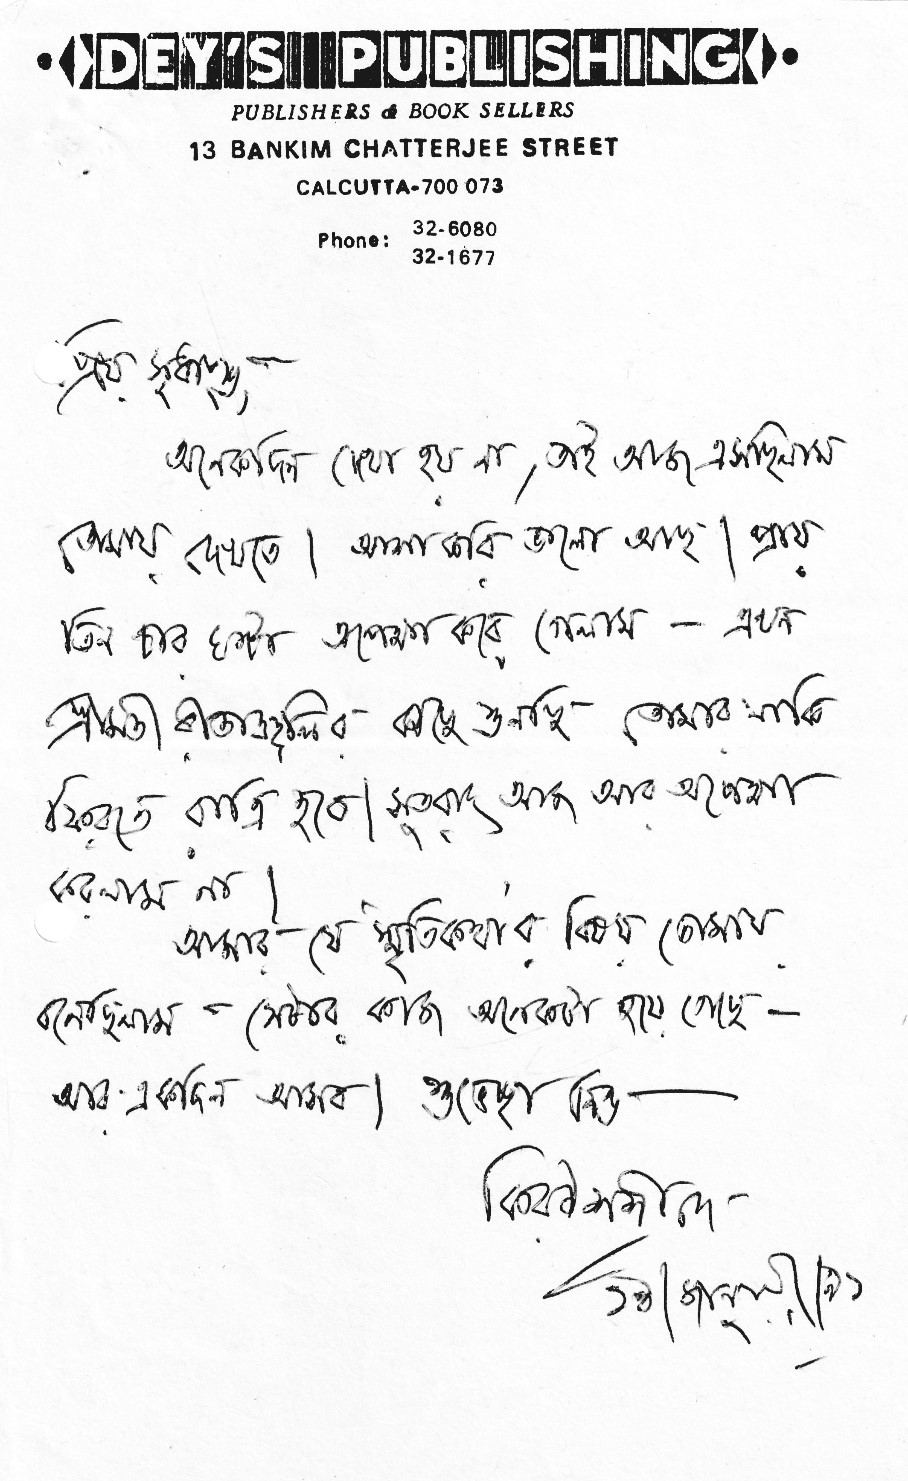 DEY'S PUBLISHING
PUBLISHERS & BOOK SELLERS
13 BANKIM CHATTERJEE STREET
CALCUTTA-700 073
Phone: 32-6080
32-1677
প্রিয় সুধাংশু,
অনেকদিন দেখা হয় না, তাই আজ এসেছিলাম
তোমায় দেখতে। আশা করি ভালো আছ। প্রায়
তিন চার ঘন্টা অপেক্ষা করে গেলাম — এখন
শ্রীমতী কাছে শুনছি তোমার নাকি
ফিরতে রাত্রি হবে। সুতরাং আজ আর অপেক্ষা
করলাম না।
আমার যে স্মৃতিকথার বিষয় তোমায়
বলেছিলাম - সেটার কাজ অনেকটা হয়ে গেছে —
আর একদিন আসব। শুভেচ্ছা নিও —
কিরণশশী দে
জানুয়ারী/৯১